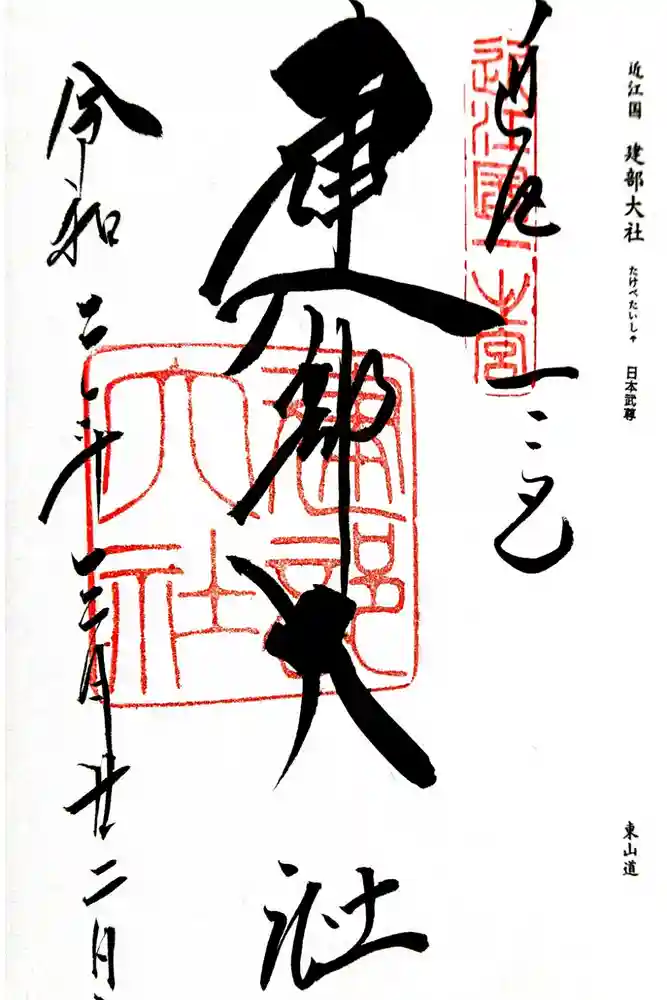 近江国 建部大社 たけべたいしゃ 日本武尊
東山道
近江国一之宮
近江
一之宮
建部大社
建部大社
令和二年十二月廿二日